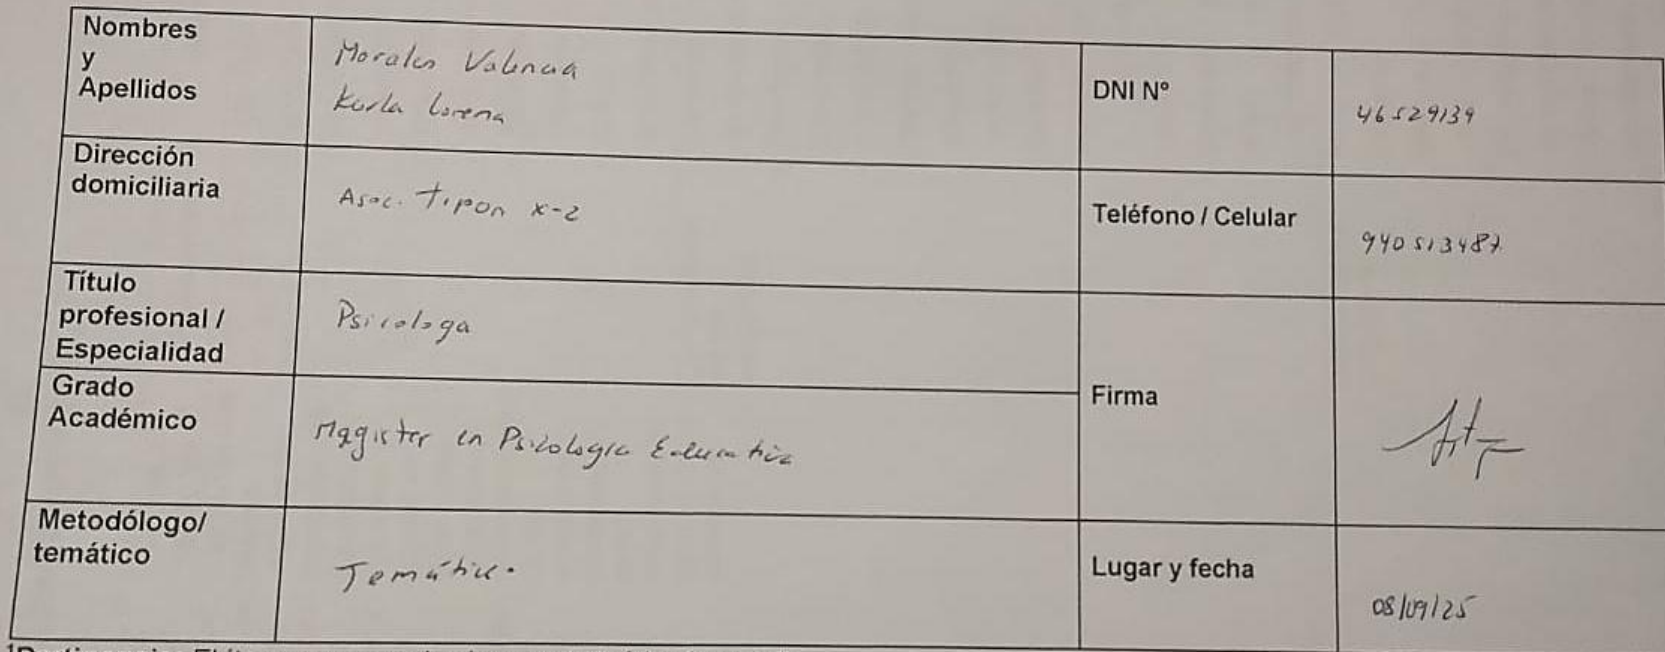 Nombres
y
Apellidos
Morales Valencia
Karla Lorena
DNI Nº
46529139
Dirección
domiciliaria
Asoc. Tipon x-2
Teléfono / Celular
940513487
Título
profesional /
Especialidad
Psicologa
Firma
Grado
Académico
Magister en Psicologia Educativa
Metodólogo/
temático
Temático
Lugar y fecha
08/09/25